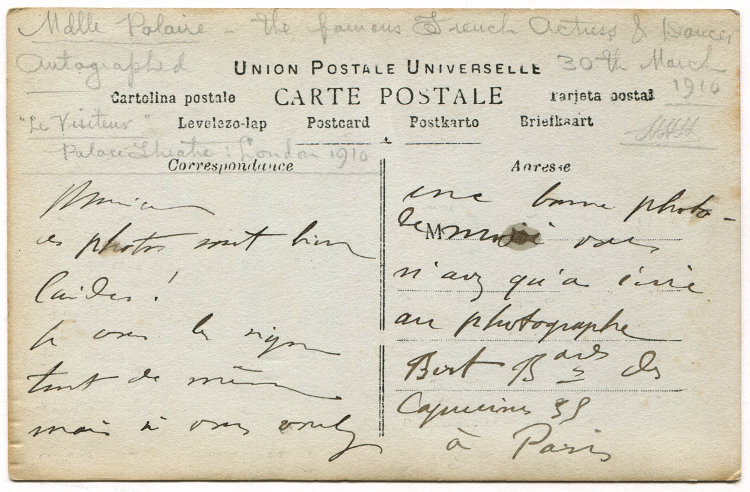 Mdlle Polaire - The famous French Actress & Dancer
Autographed
30th March
1910
UNION POSTALE UNIVERSELLE
Cartolina postale
CARTE POSTALE
Tarjeta postal
"Le Visiteur"
Levelezo-lap
Postcard
Postkarto
Briefkaart
Palace Theatre: London 1910
Correspondance
Adresse
Monsieur
ces photos sont bien
laides!
je vous les signe
tout de même
mais si vous voulez
une bonne photo-
de M moi vous
n'avez qu'à écrire
au photographe
Bert Bards des
Capucines 35
à Paris